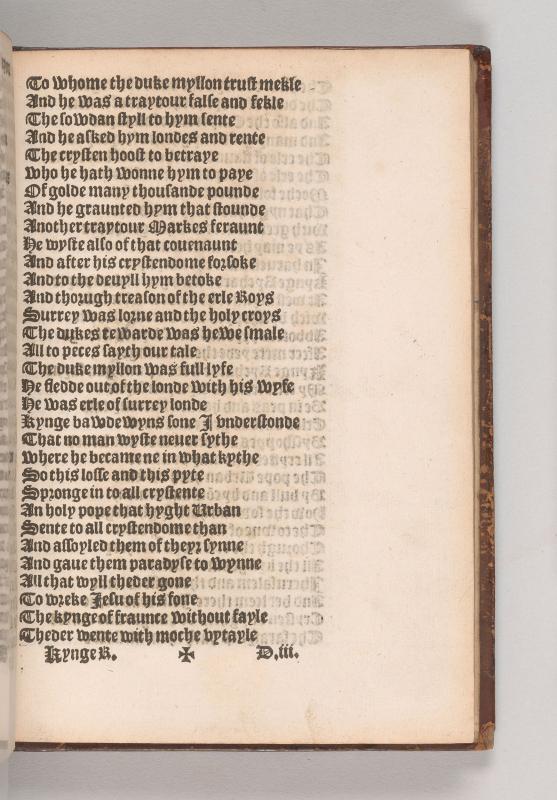 To whome the duke myllon trust mekle
And he was a traytour false and fekle
The sowdan styll to hym sente
And he asked hym londes and rente
The crysten hoost to betraye
Who he hath wonne hym to paye
Of golde many thousande pounde
And he graunted hym that stounde
Another traytour Markes feraunt
He wyste also of that couenaunt
And after his crystendome forsoke
And to the deuyll hym betoke
And thorugh treason of the erle Roys
Surrey was lorne and the holy croys
The dukes rewarde was hewe smale
All to peces sayth our tale
The duke myllon was full lyfe
He fledde out of the londe with his wyfe
He was erle of surrey londe
Kynge bawdewyns sone I vnderstonde
That no man wyste neuer sythe
Where he became ne in what kythe
So this losse and this pyte
Spronge in to all crystente
An holy pope that hyght Urban
Sente to all crystendome than
And assoyled them of theyr synne
And gaue them paradyse to wynne
All that wyll theder gone
To wreke Jesu of his fone
The kynge of fraunce without fayle
Theder wente with moche vytayle
Kynge R. ✠ D.iii.